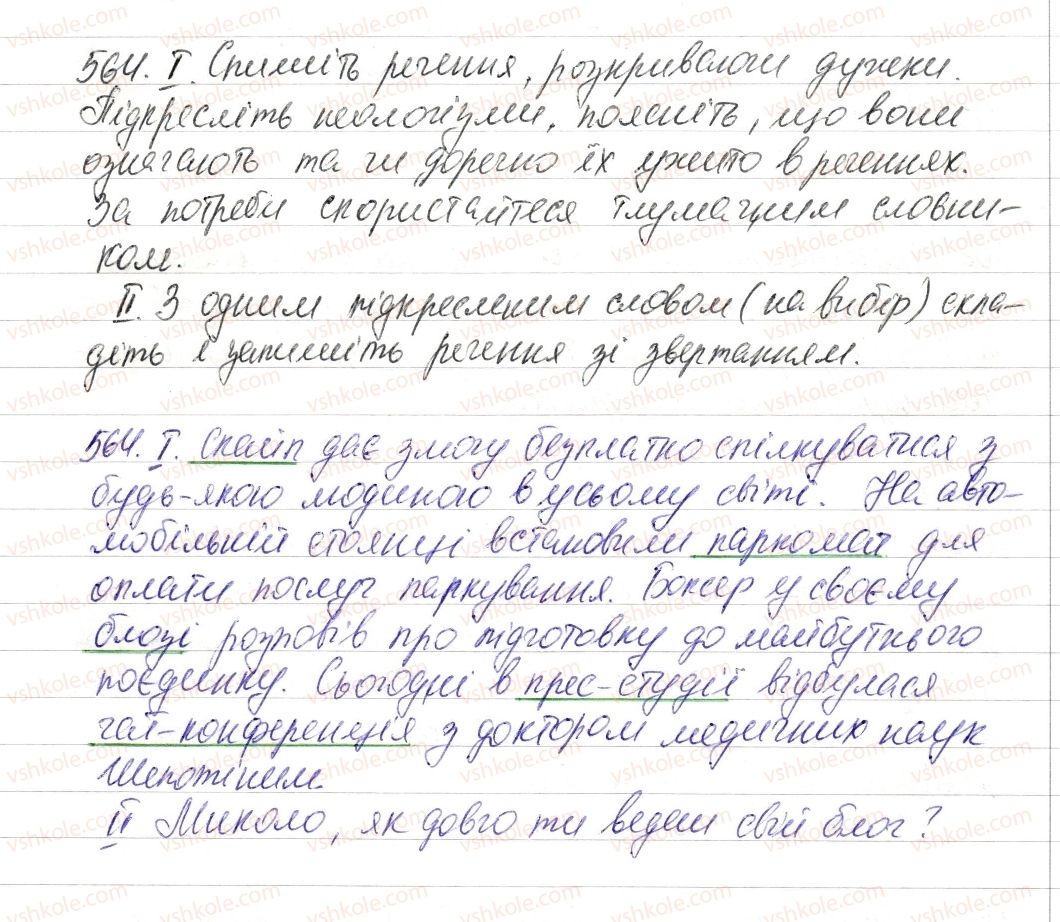 564. I. Спишіть речення, розкриваючи дужки.
Підкресліть неологізми, поясніть, що вони
означають та чи доречно їх ужито в реченнях.
За потреби скористайтеся тлумачним словни-
ком.
II. З одним підкресленим словом (на вибір) скла-
діть і запишіть речення зі звертанням.
564. I. Скайп дає змогу безплатно спілкуватися з
будь-якою людиною в усьому світі. На авто-
мобільній стоянці встановили паркомат для
оплати послуг паркування. Боксер у своєму
блозі розповів про підготовку до майбутнього
поєдинку. Сьогодні в прес-студії відбулася
чат-конференція з доктором медичних наук
Шепотіним.
II Миколо, як довго ти ведеш свій блог?